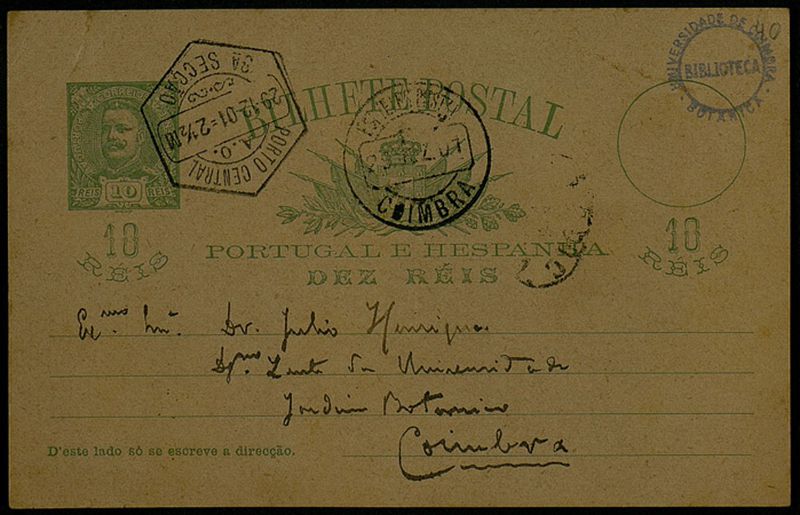 40
UNIVERSIDADE DE COIMBRA
BIBLIOTECA
BOTANICA
BILHETE POSTAL
CORREIOS
REIS 10 REIS
PORTO CENTRAL
3A SECÇÃO
29-12-01
COIMBRA
10
RÉIS
10
RÉIS
PORTUGAL E HESPANHA
DEZ RÉIS
Exmo Snr. Dr. Julio Henriques
Dgmo Lente da Universidade
Jardim Botanico
Coimbra
D'este lado só se escreve a direcção.